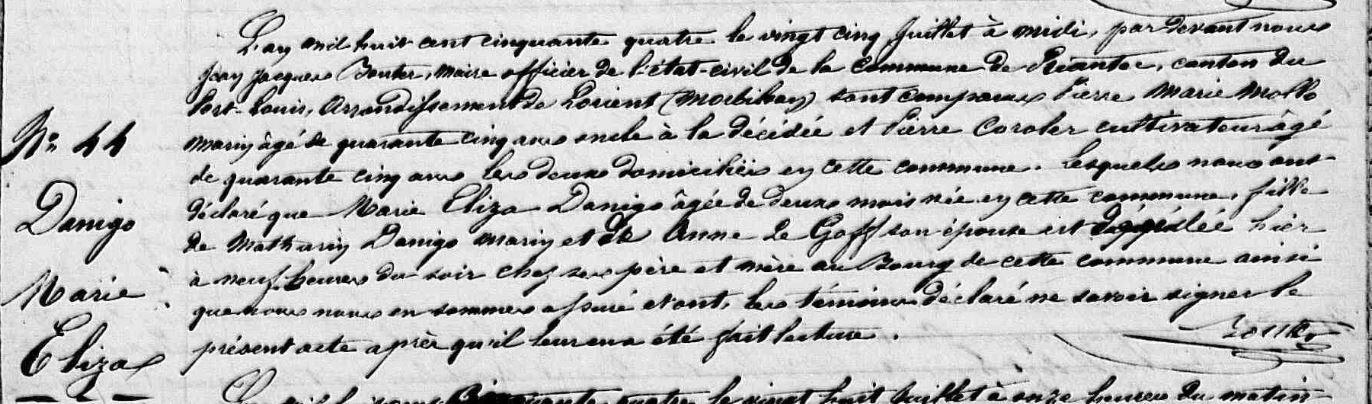 L'an mil huit cent cinquante quatre le vingt cinq Juillet à midi, par devant nous
Jean Jacques maire officier de l'état-civil de la commune de Riantec, canton du
Port-Louis, Arrondissement de Lorient (Morbihan) sont comparus Pierre Marie Mollo
marin âgé de quarante cinq ans oncle à la décédée et Pierre Coroler cultivateur âgé
de quarante cinq ans les deux domiciliés en cette commune. Lesquels nous ont
déclaré que Marie Eliza Danigo âgée de deux mois née en cette commune, fille
de Mathurin Danigo marin et de Anne Le Goff son épouse est décédée hier
à neuf heures du soir chez ses père et mère au Bourg de cette commune ainsi
que nous nous en sommes assuré et ont, les témoins déclaré ne savoir signer le
présent acte après qu'il leur en a été fait lecture.
No 44
Danigo
Marie
Eliza
cinquante quatre le vingt huit Juillet à onze heures du matin